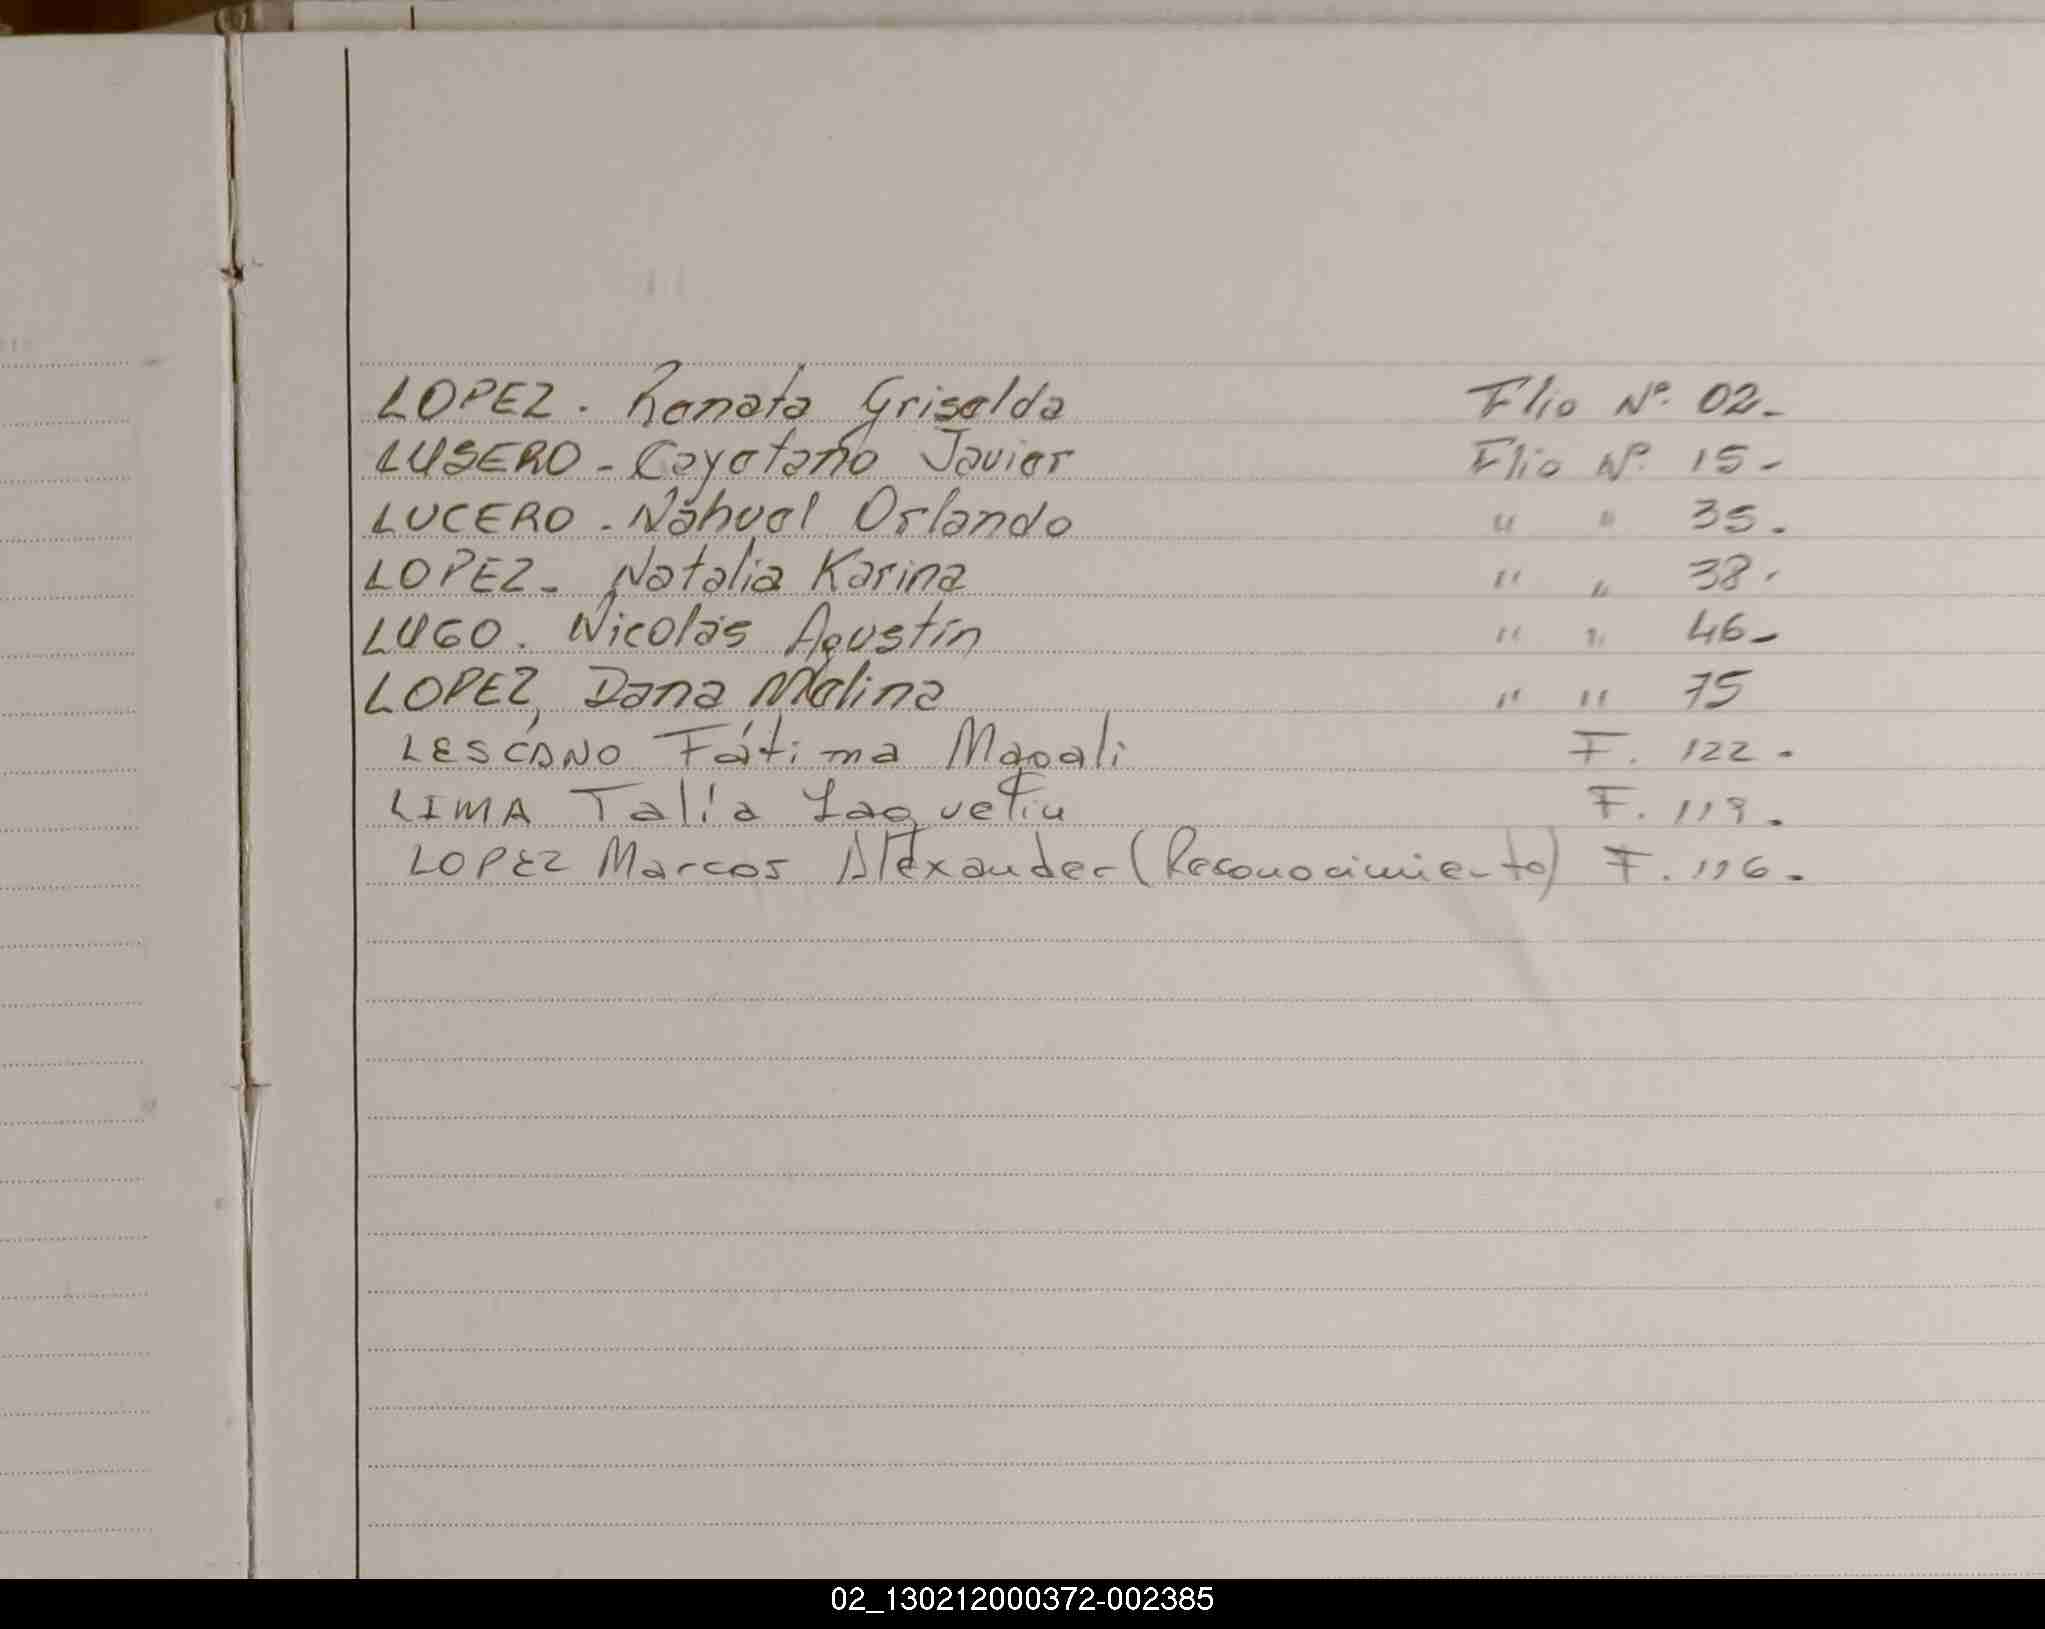 LOPEZ. Renata Griselda Flio Nº. 02-
LUSERO - Cayetano Javier Flio Nº. 15-
LUCERO - Nahuel Orlando " " 35.
LOPEZ - Natalia Karina " " 38.
LUGO. Nicolás Agustín " " 46-
LOPEZ, Dana Malina " " 75
LESCANO Fátima Magali F. 122.
LIMA Talía F. 119.
LOPEZ Marcos Alexander (Reconocimiento) F. 116.
02_130212000372-002385